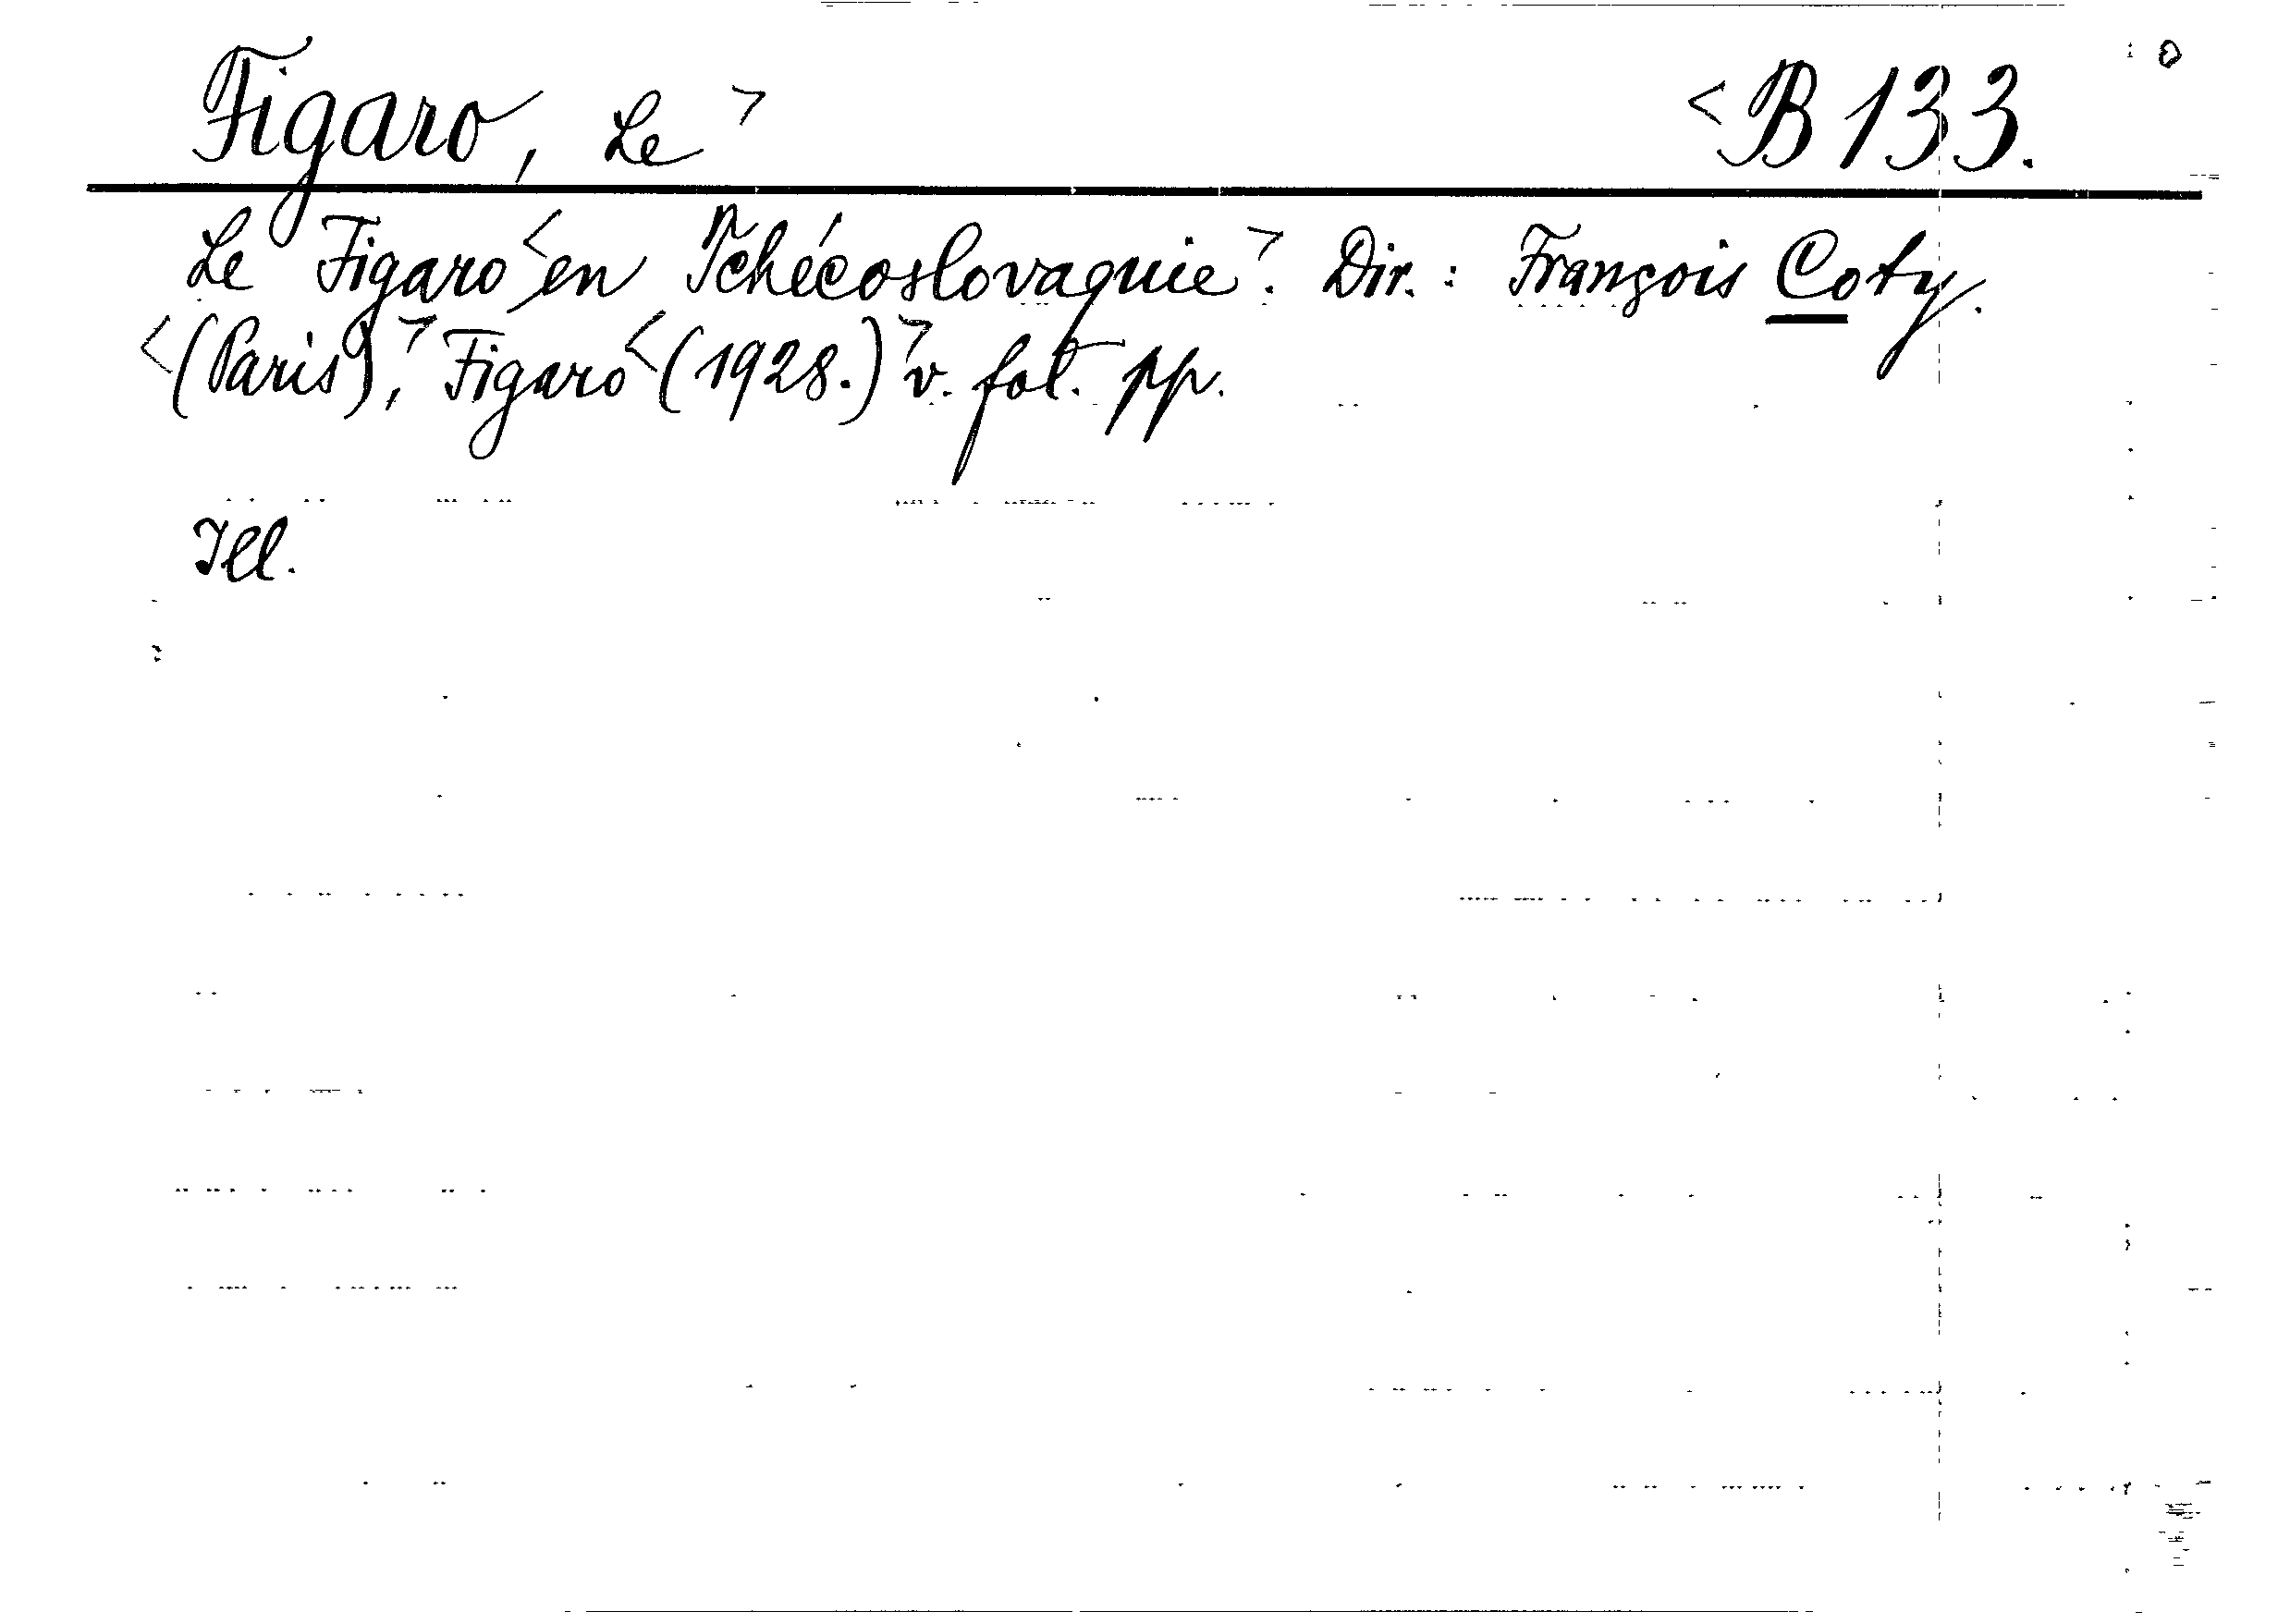 Figaro, Le > < B 133.
Le Figaro < en Tchécoslovaquie >. Dir.: François Coty.
< (Paris), > Figaro < (1928.) > v. fol. pp.
Ill.